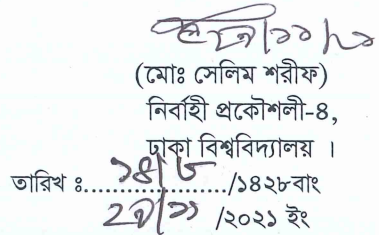 (মোঃ সেলিম শরীফ)
নির্বাহী প্রকৌশলী-৪,
ঢাকা বিশ্ববিদ্যালয় ।
তারিখ ঃ.....১৪/৮...../১৪২৮বাং
২৯/১১ /২০২১ ইং